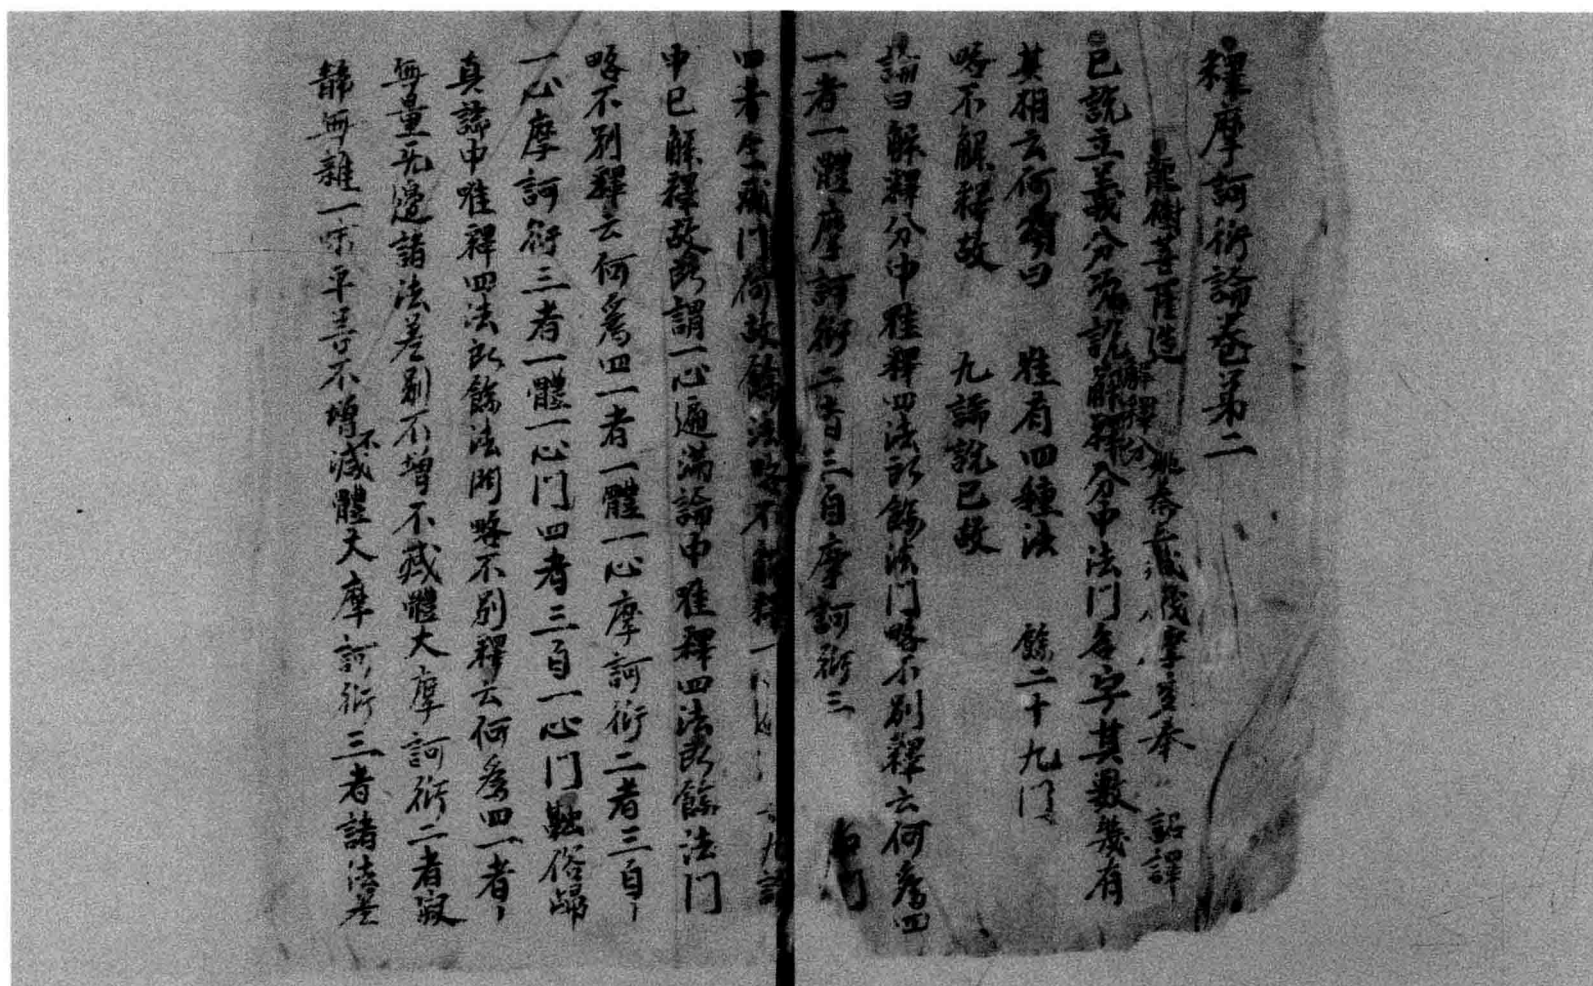 釋摩訶衍論卷第二
龍樹菩薩造 姚秦三藏筏提摩多奉 詔譯
已說立義分竟說解釋分中法門名字其數幾有
解釋分
其相云何頌曰 唯有四種法 餘二十九門
略不解釋故 九論說已故
論曰解釋分中唯釋四法所餘法門略不別釋云何為四
一者一體摩訶衍二者三自摩訶衍三
四者生滅門何故餘法略不解釋
中已解釋故所謂一心遍滿論中唯釋四法所餘法門
略不別釋云何為四一者一體一心摩訶衍二者三自一
一心摩訶衍三者一體一心門四者三自一心門融俗歸
真論中唯釋四法所餘法門略不別釋云何為四一者
無量无邊諸法差別不增不减體大摩訶衍二者寂
靜無雜一味平等不增不減體大摩訶衍三者諸法差